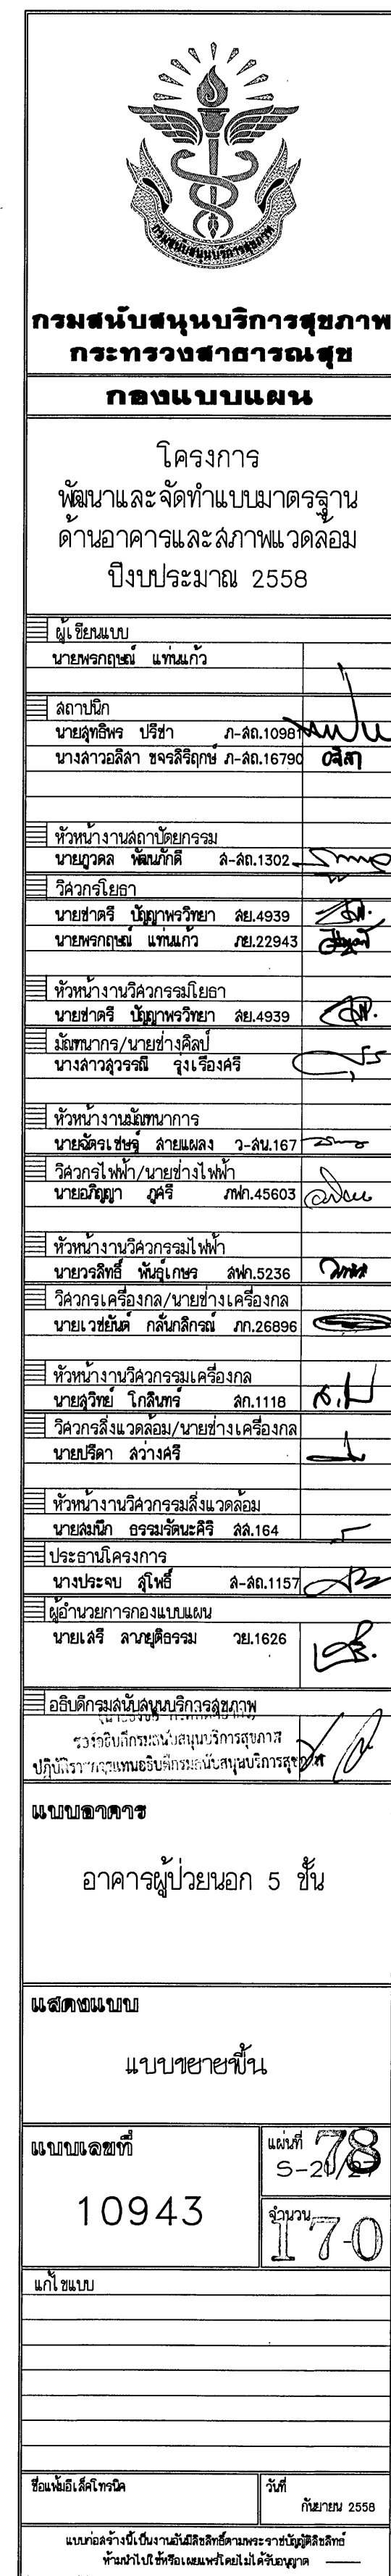 กรมสนับสนุนบริการสุขภาพ
กรมสนับสนุนบริการสุขภาพ
กระทรวงสาธารณสุข
กองแบบแผน
โครงการ
พัฒนาและจัดทำแบบมาตรฐาน
ด้านอาคารและสภาพแวดล้อม
ปีงบประมาณ 2558
ผู้เขียนแบบ
นายพรกฤษณ์ แท่นแก้ว
สถาปนิก
นายสุทธิพร ปรีชา ภ-สถ.10981
นางสาวอลิสา ขจรสิริฤกษ์ ภ-สถ.16790
อลิสา
หัวหน้างานสถาปัตยกรรม
นายภูวดล พัฒนภักดี ส-สถ.1302
วิศวกรโยธา
นายชาตรี ปัญญาพรวิทยา สย.4939
นายพรกฤษณ์ แท่นแก้ว ภย.22943
หัวหน้างานวิศวกรรมโยธา
นายชาตรี ปัญญาพรวิทยา สย.4939
มัณฑนากร/นายช่างศิลป์
นางสาวสุวรรณี รุ่งเรืองศรี
หัวหน้างานมัณฑนาการ
นายฉัตรเชษฐ์ สายแผลง ว-สน.167
วิศวกรไฟฟ้า/นายช่างไฟฟ้า
นายอภิญญา ภูศรี ภฟก.45603
หัวหน้างานวิศวกรรมไฟฟ้า
นายวรสิทธิ์ พันธุ์เกษร สฟก.5236
วิศวกรเครื่องกล/นายช่างเครื่องกล
นายเวชยันต์ กลั่นกลิกรณ์ ภก.26896
หัวหน้างานวิศวกรรมเครื่องกล
นายสุวิทย์ โกสินทร์ สก.1118
วิศวกรสิ่งแวดล้อม/นายช่างเครื่องกล
นายปรีดา สว่างศรี
หัวหน้างานวิศวกรรมสิ่งแวดล้อม
นายสมนึก ธรรมรัตนะศิริ สส.164
ประธานโครงการ
นางประจบ สุโพธิ์ ส-สถ.1157
ผู้อำนวยการกองแบบแผน
นายเสรี ลาภยุติธรรม วย.1626
อธิบดีกรมสนับสนุนบริการสุขภาพ
รองอธิบดีกรมสนับสนุนบริการสุขภาพ
ปฏิบัติราชการแทนอธิบดีกรมสนับสนุนบริการสุขภาพ
แบบอาคาร
อาคารผู้ป่วยนอก 5 ชั้น
แสดงแบบ
แบบขยายพื้น
แบบเลขที่
10943
แผ่นที่ 78
S-21/27
จำนวน
170
แก้ไขแบบ
ชื่อแฟ้มอิเล็คโทรนิค
วันที่
กันยายน 2558
แบบก่อสร้างนี้เป็นงานอันมีลิขสิทธิ์ตามพระราชบัญญัติลิขสิทธ์
ห้ามนำไปใช้หรือเผยแพร่โดยไม่ได้รับอนุญาต